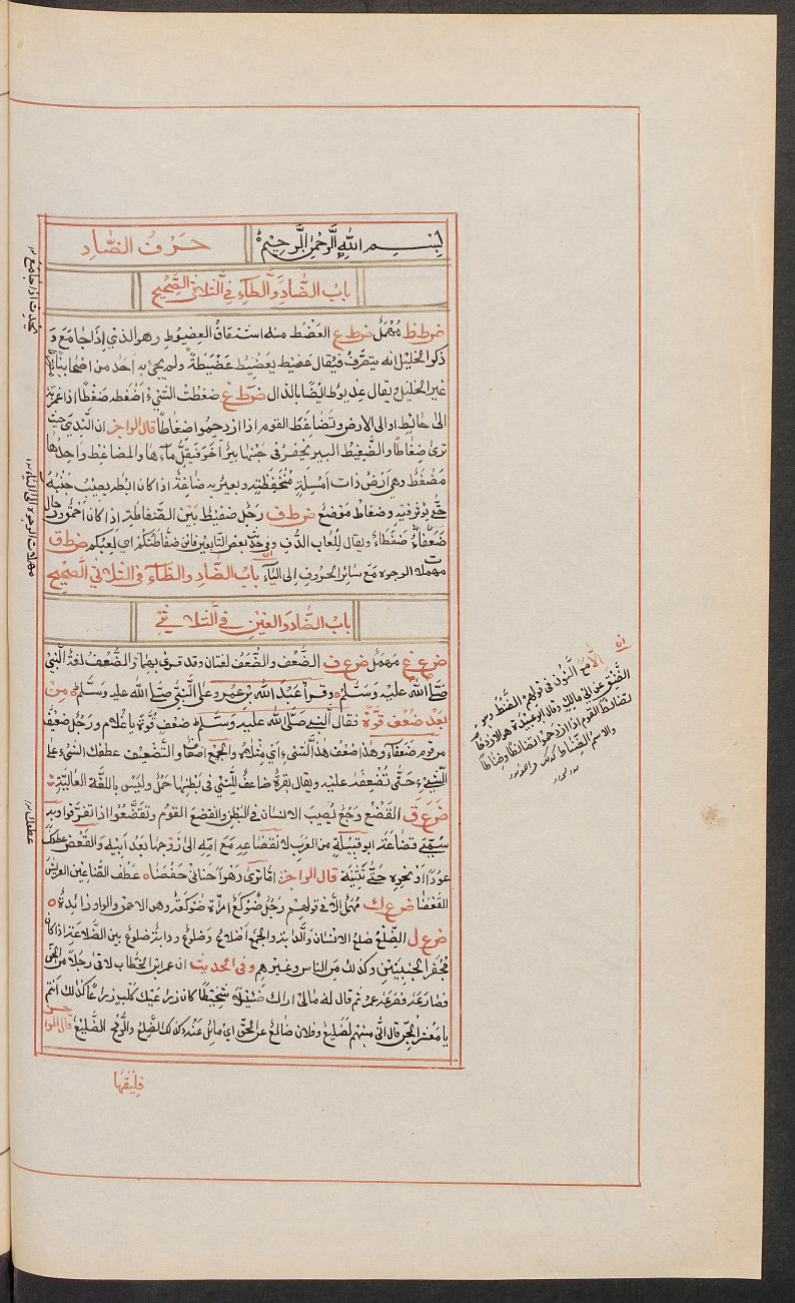 بسم الله الرحمن الرحيم حرف الضاد
باب الضاد والطاء في الثلاثي الصحيح
ض ط ظ مهمل ض ط ع العضط منه استقاق العضيوط وهو الذي إذا جامع و
ذكر الخليل انه يتصرف فيقال عضيط يعضيط عضيطة ولم يجئ به احد من اصحابنا
غير الخليل ويقال عذيوط ايضا بالذال ض ط غ ضغطت الشيء اضغطه ضغطا اذا غمزته
الى حائط او الى الارض وتضاغط القوم اذا ازدحموا ضغاطا قال الراجز ان الندي حيث
ترى ضغاطا والضغيط البير تحفر في جنبها بير أخرى فيقل ماءها والمضاغط واحدها
مضغط وهي ارض ذات امسلة منخفضة وبعير به ضاغط اذا كان ابطه يصيب جنبه
حتى يؤثر فيه وضغاط موضع ض ط ف رجل ضفيط بين الضفاطة اذا كان احمق ورجال
ضعفاء ضفطاء ويقال للعاب الدف وفي حديث بعض التابعين فاين ضفاطتكم اي لعبكم ض ط ق
مهملات الوجوه مع سائر الحروف إلى الياء باب الضاد والظاء في الثلاثي الصحيح
باب الضاد والعين في الثلاثي
ض ع غ مهمل ض ع ف الضعف والضعف لغتان وقد قرئ بهما والضعف لغة النبي
صلى الله عليه وسلم وقرأ عبد الله بن عمر وعلى النبي صلى الله عليه وسلم من
بعد ضعف قوة فقال النبي صلى الله عليه وسلم ضعف قوة يا غلام ورجل ضعيف
من قوم ضعفاء وهذا ضعف هذا الشيء اي مثله والجمع اضعاف والتضعيف عطفك الشيء على
الشيء حتى تضعف عليه ويقال بقرة ضاعف للتي في بطنها حمل وليس باللغة العالية
ض ع ق القضع وجع يصيب الانسان في البطن وانقضع القوم وتقضعوا اذا تفرقوا وبه
سميت قضاعة ابو قبيلة من العرب لانقضاعه مع امه الى زوجها بعد ابيه والقعض عطفك
عودا او نحوه حتى تثنيه قال الراجز اما ترى دهرا حناني حفضا عطف الصناعين العريش
القعضا ض ع ك مهمل الا في قولهم رجل ضوكع امرأة ضوكعة وهو الاحمق والواو زائدة
ض ع ل الضلع ضلع الانسان والدابة والجمع اضلاع وضلوع ودابة ضلوع بين الضلاعة اذا كان
مجفر الجنبين وكذلك من الناس وغيرهم وفي الحديث ان عمر بن الخطاب لاقى رجلا من الجن
فصارعه فصرعه عمر ثم قال له مالي اراك ضئيلا شخيتا كان ذراعيك كلب ذراعا كذلك انتم
يا معشر الجن قال اني منهم لضليع وفلان ضالع عن الحق اي مائل عنه وكذلك الضلع والرمح الضليع قال الراجز
فليقها
يحدث اذا جامع
مهملات الوجوه الى الياء
عطفك
الا مع النون في قولهم الضنط وهو
الضيق عن ابي مالك وقال ابو عبيدة هو الازدحام
تضانط القوم اذا ازدحموا تضانطا وضناطا
والاسم الضناط